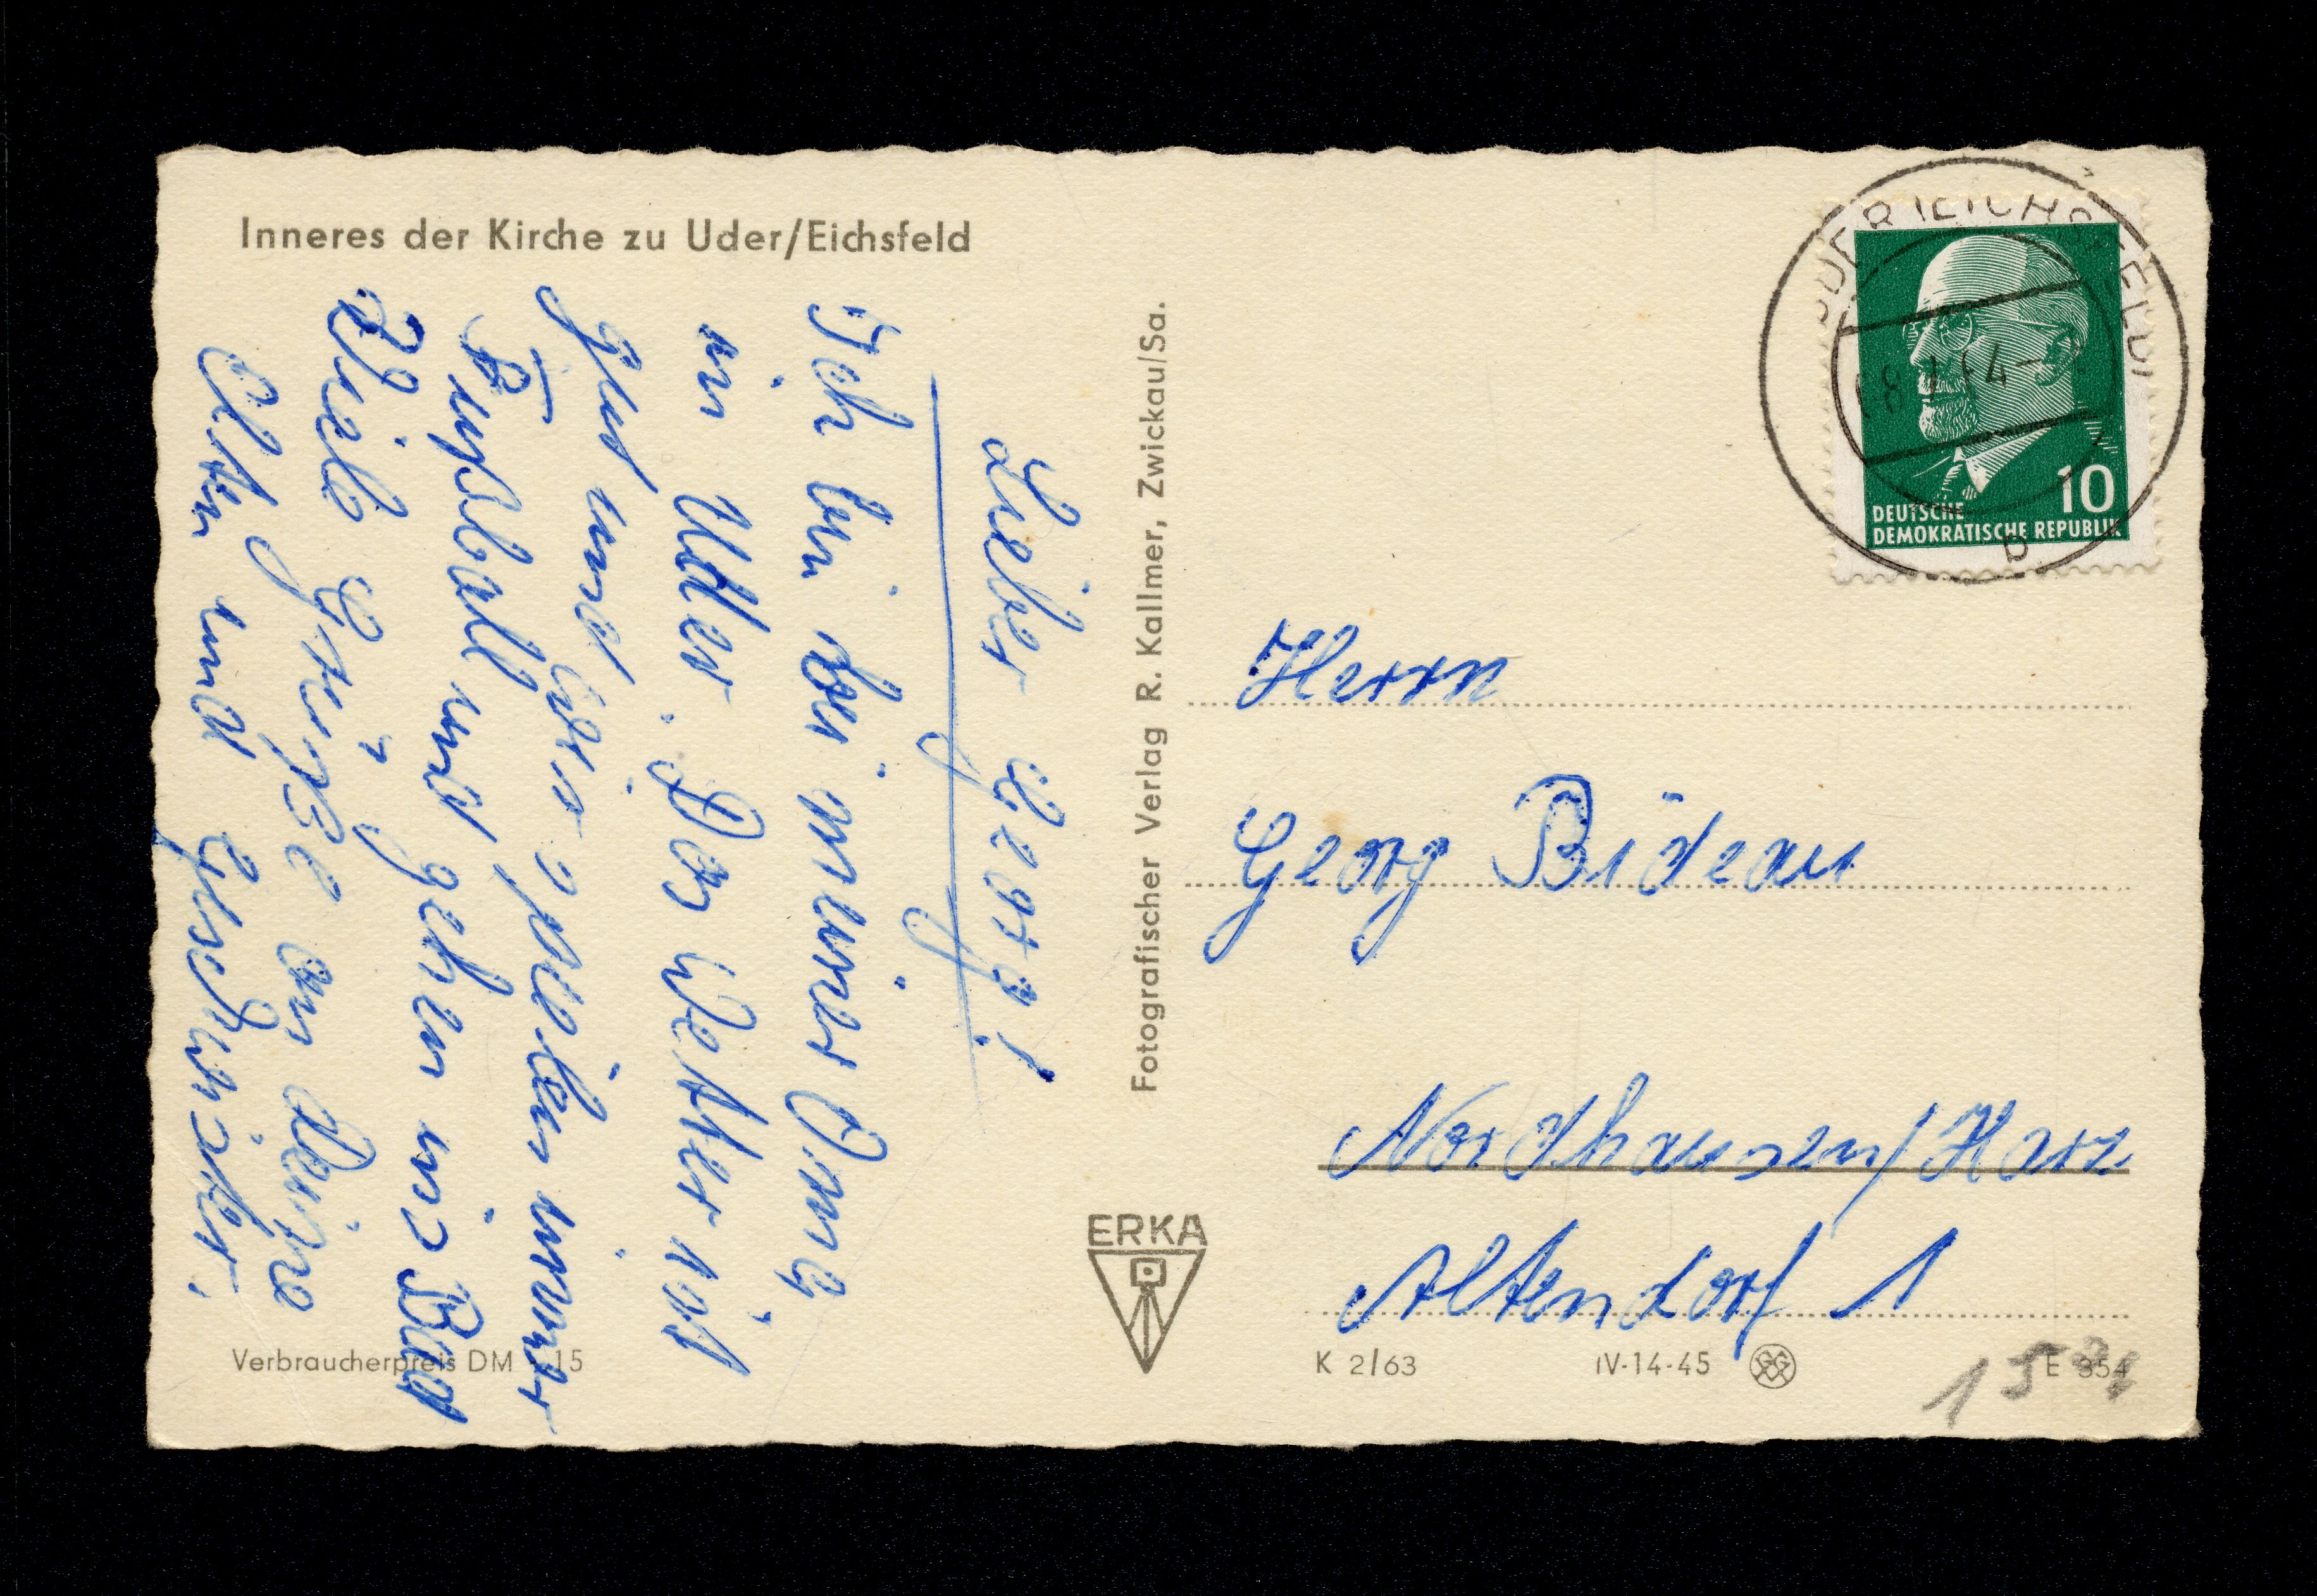 Inneres der Kirche zu Uder/Eichsfeld
Lieber Georg!
Ich bin bei meiner Oma
in Uder. Das Wetter ist
gut und wir spielen immer
Fußball und gehen ins Bad
Viele Grüße an deine
Eltern und Geschwister.
Verbraucherpreis DM 15
Fotografischer Verlag R. Kallmer, Zwickau/Sa.
ERKA
UDER (EICHSFELD)
b
10
DEUTSCHE
DEMOKRATISCHE REPUBLIK
Herrn
Georg Bideau
Nordhausen/Harz
Altendorf 1
K 2/63 IV-14-45 E 354